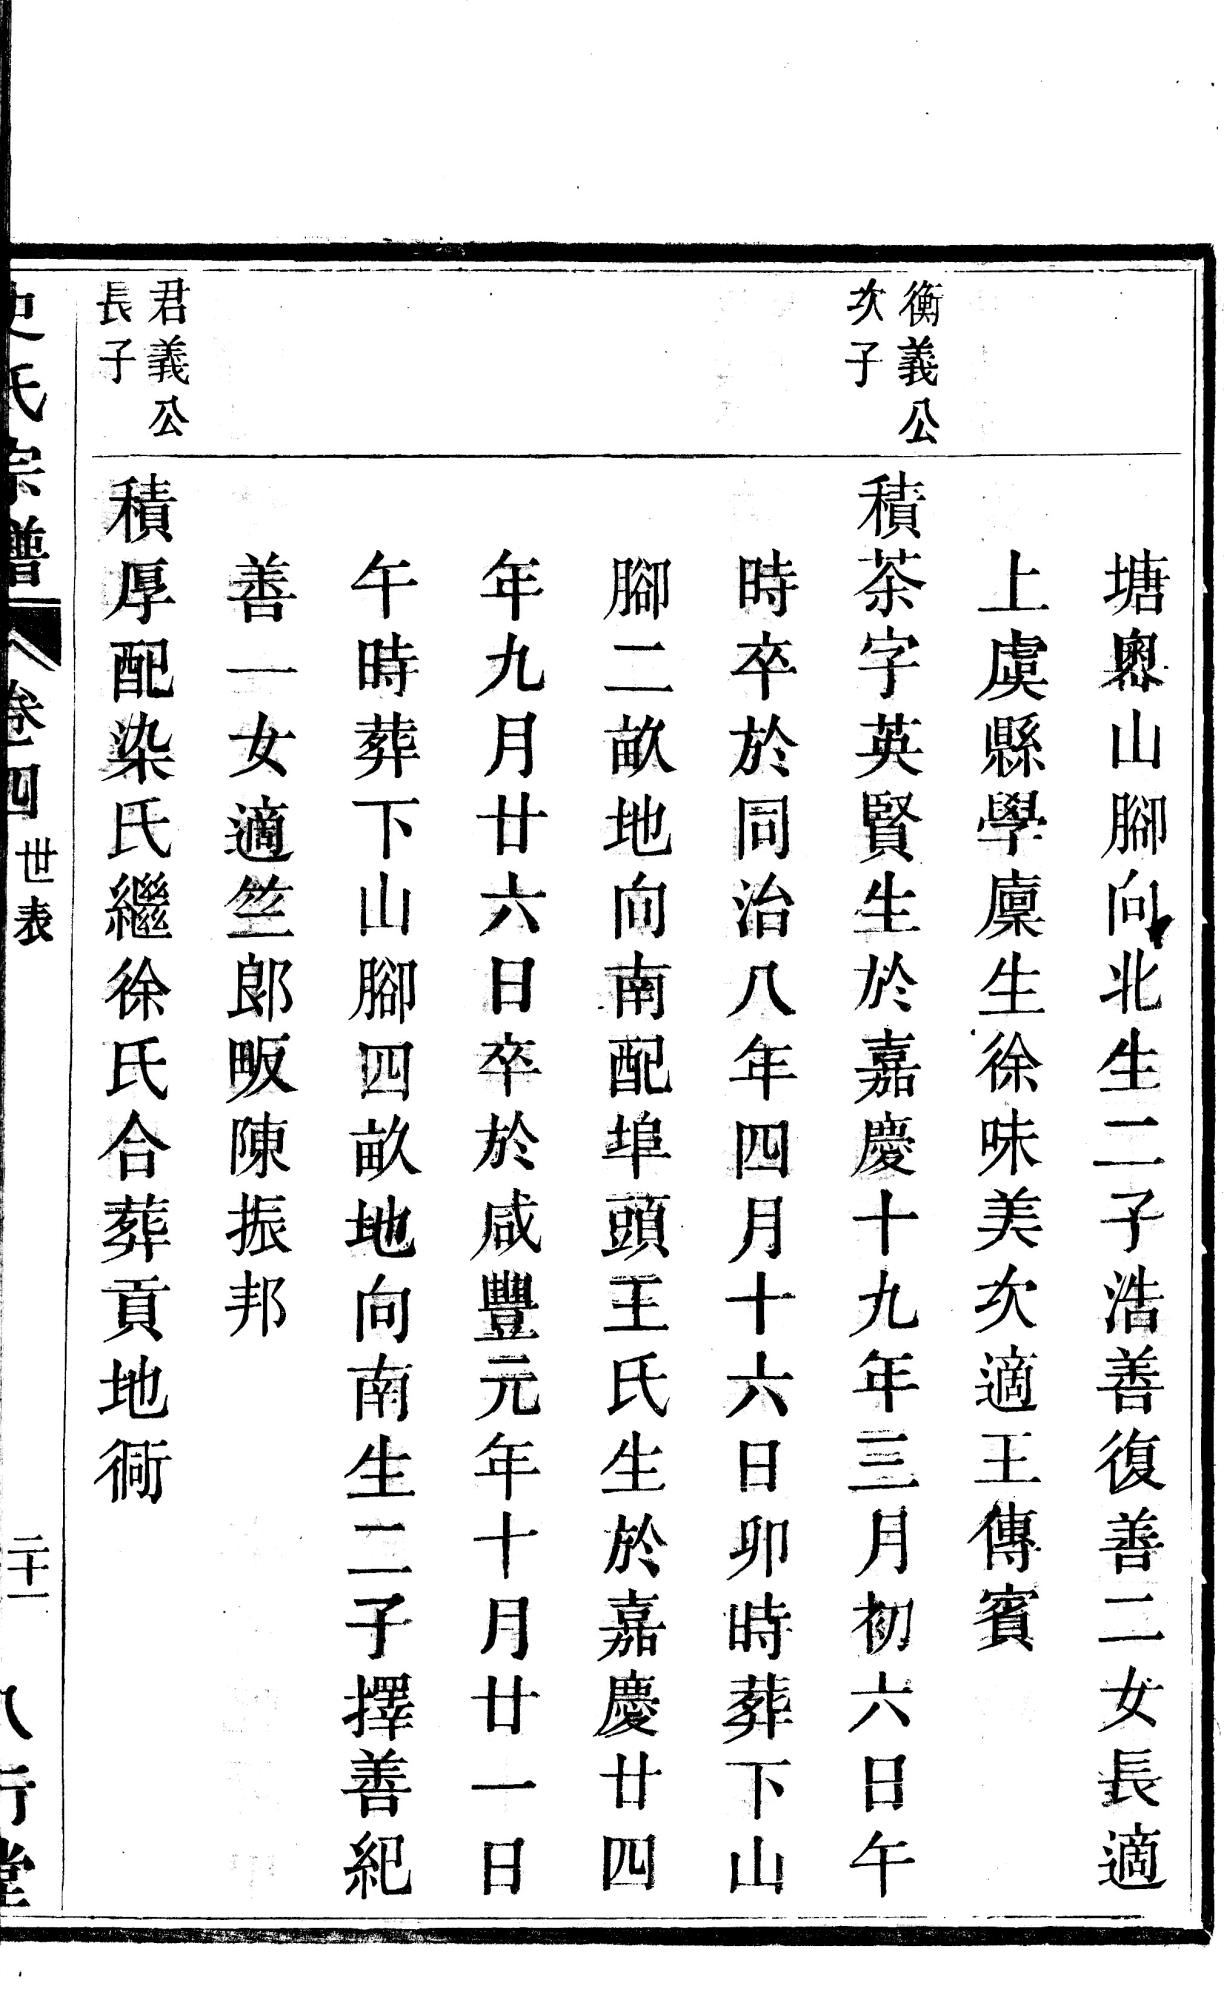 塘奧山腳向北生二子浩善復善二女長適
上虞縣學廩生徐味美次適王傳賓
衡義公
次子
積茶字英賢生於嘉慶十九年三月初六日午
時卒於同治八年四月十六日卯時葬下山
腳二畝地向南配埠頭王氏生於嘉慶廿四
年九月廿六日卒於咸豐元年十月廿一日
午時葬下山腳四畝地向南生二子擇善紀
善一女適竺郎畈陳振邦
君義公
長子
積厚配染氏繼徐氏合葬貢地衕
史氏宗譜 卷四 世表 二十一 八行堂